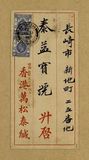 長崎市新地町二五番地
秦益寶號 升啓
香港萬松泰緘